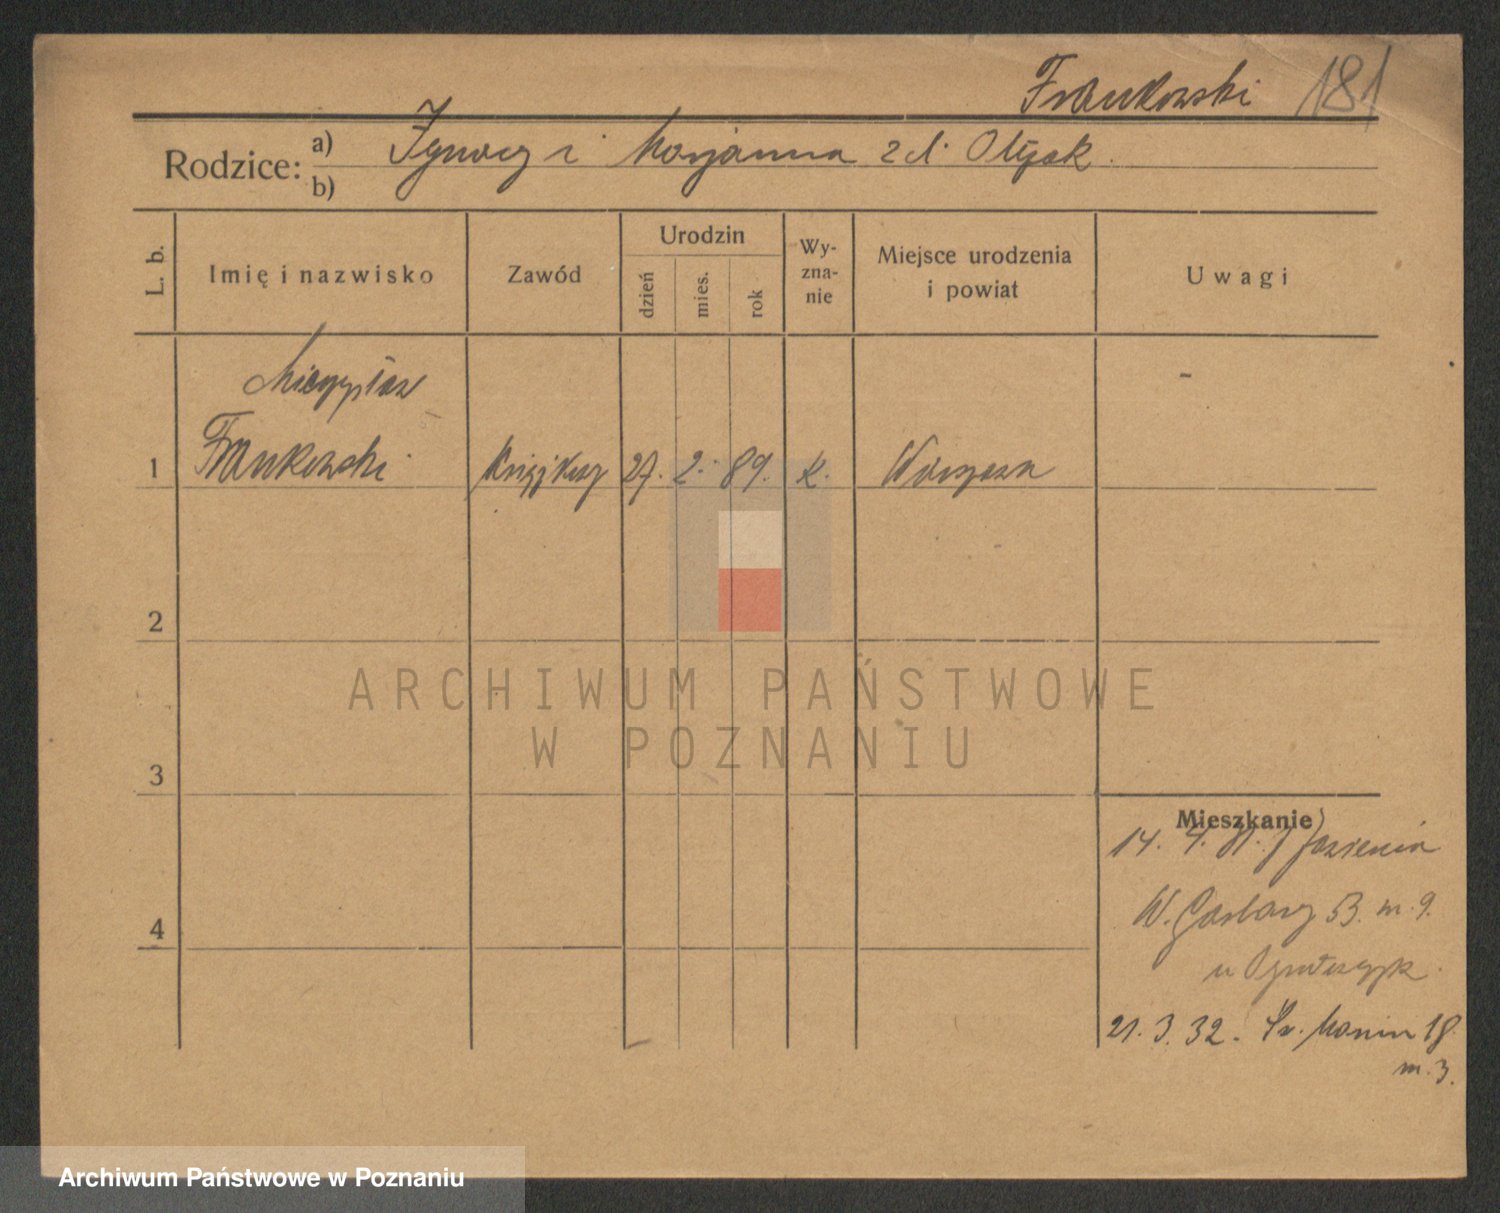 Frankowski 181
Rodzice: a) Ignacy i Marjanna z d. Olejak.
b)
L. b.
Imię i nazwisko
Zawód
Urodzin
dzień
mies.
rok
Wy-
zna-
nie
Miejsce urodzenia
i powiat
Uwagi
Mieczysław
1 Frankowski 27. 2. 89. k. Warszawa
2
3
4
ARCHIWUM PAŃSTWOWE
W POZNANIU
Mieszkanie
14. 4. 31.
W. Garbary 53. m. 9.
u
21. 3. 32. Św. Marcin 18
m. 3.
Archiwum Państwowe w Poznaniu